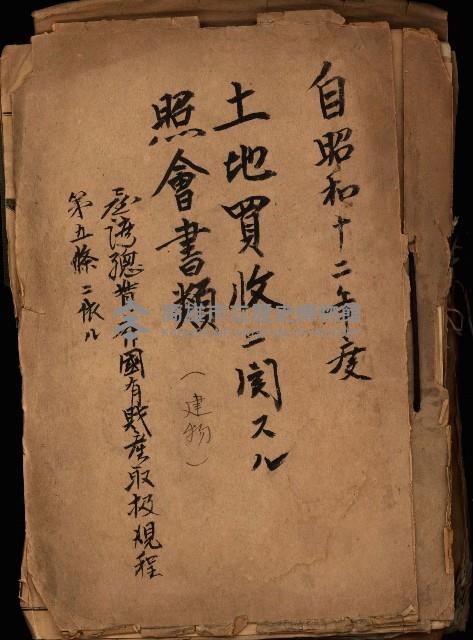 自昭和十二年度
土地買收ニ関スル
照會書類
(建物)
臺灣總督府國有財產取扱規程
第五條ニ依ル
高雄市立歷史博物館